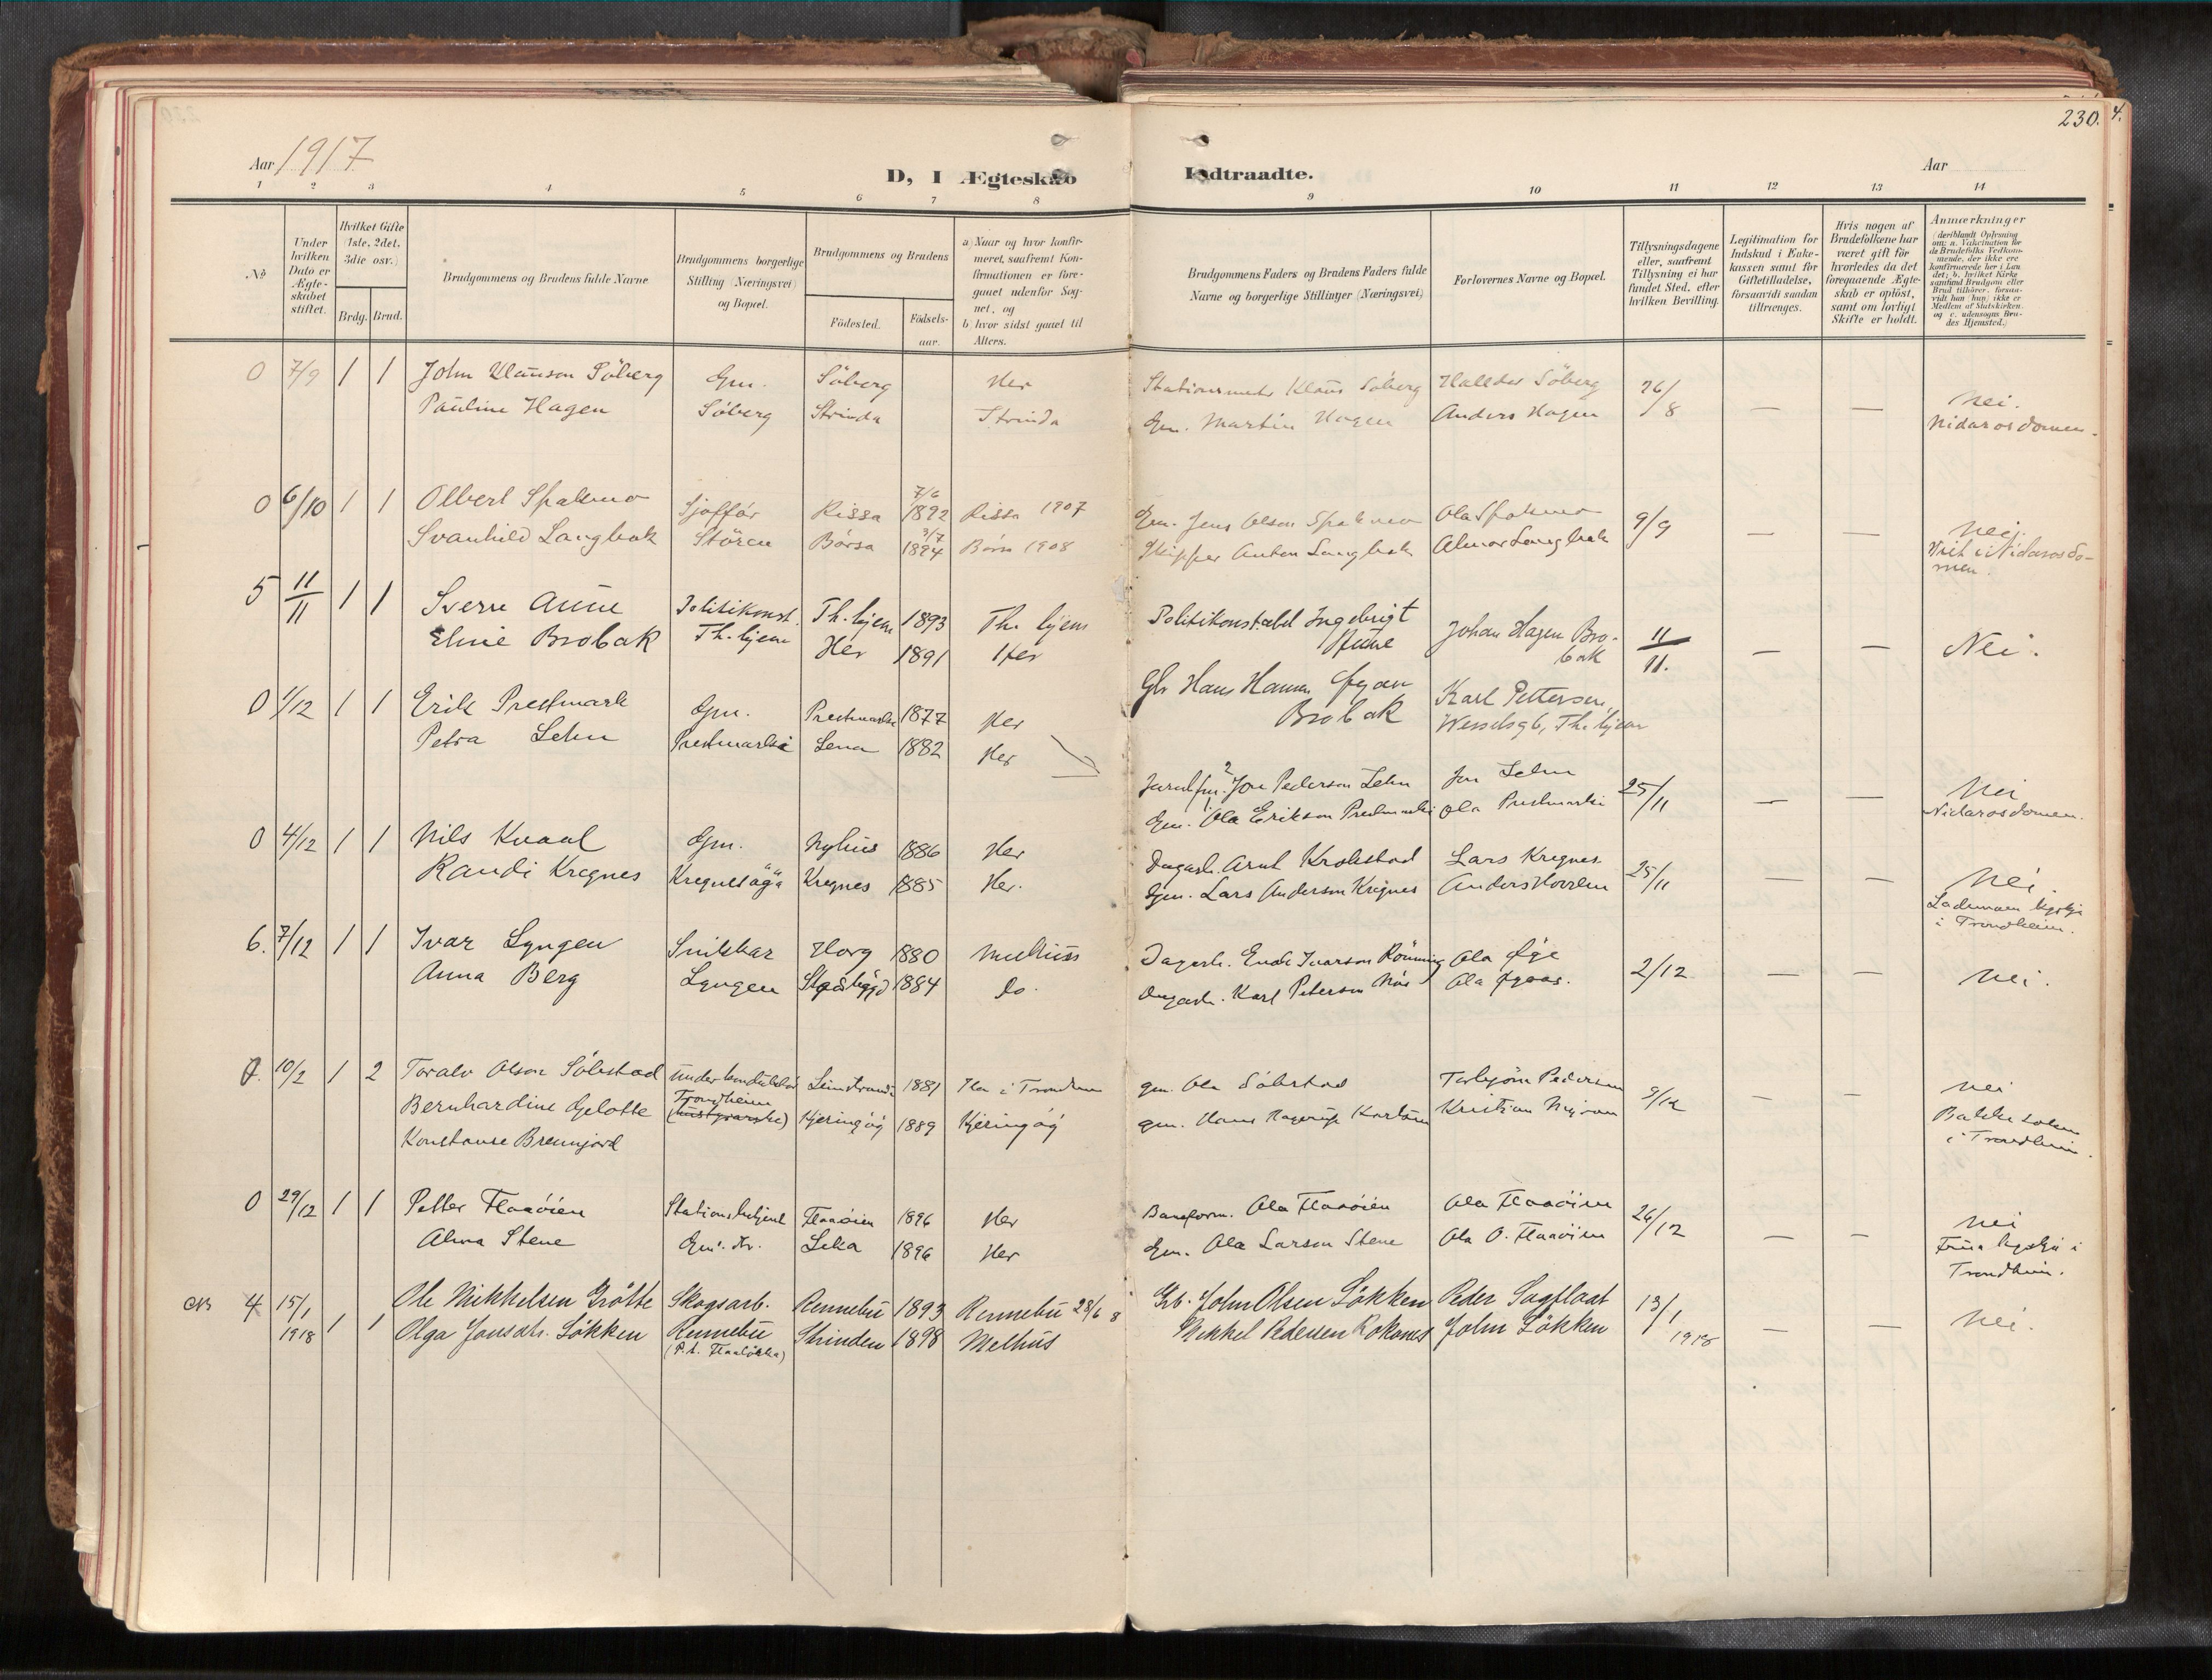 230. 4.
Aar 1917
D, I Ægteskab Indtraadte.
Aar
1 2 3 4 5 6 7 8 9 10 11 12 13 14
No
Under hvilken Dato er Ægteskabet stiftet.
Hvilket Gifte (1ste, 2det, 3die osv.)
Brdg. Brud.
Brudgommens og Brudens fulde Navne
Brudgommens borgerlige Stilling (Næringsvei) og Bopæl.
Brudgommens og Brudens
Födested. Födselsaar.
a) Naar og hvor konfirmeret, saafremt Konfirmationen er foregaaet udenfor Sognet, og
b hvor sidst gaaet til Alters.
Brudgommens Faders og Brudens Faders fulde Navne og borgerlige Stillinger (Næringsvei)
Forlovernes Navne og Bopæl.
Tillysningsdagene eller, saafremt Tillysning ei har fundet Sted, efter hvilken Bevilling.
Legitimation for Indskud i Enkekassen samt for Giftetilladelse, forsaavidt saadan tiltrænges.
Hvis nogen af Brudefolkene har været gift för hvorledes da det foregaaende Ægteskab er oplöst, samt om lovligt Skifte er holdt.
Anmærkninger (deriblandt Oplysning om: a. Vakcination for de Brudefolks Vedkommende, der ikke ere konfirmerede her i Landet; b. hvilket Kirkesamfund Brudgom eller Brud tilhörer, forsaavidt han (hun) ikke er Medlem af Statskirken, og c. udensogns Brudes Hjemsted.)
0 7/9 1 1 John Klauson Söberg Gm. Söberg Her Klaus Söberg Halldor Söberg 26/8 — — Nei.
Pauline Hagen Söberg Strinda Strinda Gm. Martin Hagen Anders Hagen Nidarosdomen.
0 6/10 1 1 Olbert Spakmo Sjofför Rissa 7/6 1892 Rissa 1907 Gm. Jens Olson Spakmo Ola Spakmo 9/9 — — Nei.
Svanhild Langbak Stören Börsa 3/7 1894 Börsa 1908 Skipper Anton Langbak Almar Langbak Viet i Nidarosdomen.
5 11/11 1 1 Sverre Aune Politikonst. Th.hjem 1893 Th.hjem Politikonstabel Ingebrigt Aune Johan Hagen Brobak 11/11. — — Nei.
Eline Brobak Th.hjem Her 1891 Her Hans Hansen Öyan Brobak
0 1/12 1 1 Erik Prestmark Gm. 1877 Her Karl Pettersen, Wesselsg 6, Th.hjem
Petra Lehn Lena 1882 Her
2 Jon Pederson Lehn Jon Lehn 25/11 — — Nei
Gm. Ola Erikson Ola Nidarosdomen.
0 4/12 1 1 Nils Kvaal Gm. Nyhus 1886 Her Dagarb. Arnt Krokstad Lars Kregnes 25/11 — — Nei.
Randi Kregnes Kregnes 1885 Her. Gm. Lars Anderson Kregnes Anders Lademoen kyrkje i Trondheim.
6. 7/12 1 1 Ivar Lyngen Snikkar Horg 1880 Melhus Dagarb. Ivarson Rönning Ola Öye 2/12 — — Nei.
Anna Berg Lyngen 1884 Do. Dagarb. Karl Peterson Ola Öyaas.
10/2 1 2 Toralv Olson Sölestad Leinstrand 1881 Ila i Trondheim gm. Ola Torbjörn Pederson 9/12 — — Nei
Bernhardine Gelotte Trondheim Kjeringöy 1889 Kjeringöy gm. Hans Hagerup Kristian Bakke sokn i Trondheim.
Konstanse Bremnjord
0 29/12 1 1 Petter Flaaöien Stationsbetjent Flaaöien 1896 Her Baneform. Ola Flaaöien Ola Flaaöien 26/12 — — Nei
Alma Stene Leka 1896 Her Gm. Ola Larson Stene Ola O. Flaaöien Frua kyrkja i Trondheim.
NB 4 15/1 1918 1 1 Ole Mikkelsen Grötte Skogsarb. Rennebu 1893 Rennebu 28/6 8 Gb. John Olsen Lökken Peder Sagflaat 13/1 1918 — — Nei.
Olga Jonsdtr. Lökken Rennebu Strinden 1898 Melhus Mikkel Pedersen John Lökken